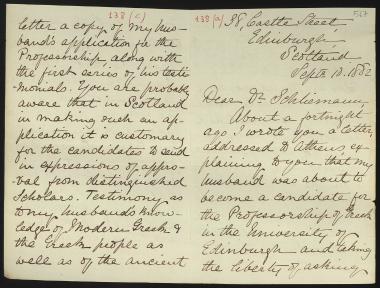 138 (a)
567
38, Castle Street
Edinburgh
Scotland
Sept. 18. 1882
Dear Dr Schliemann,
About a fortnight
ago I wrote you a letter,
addressed to Athens ex-
plaining to you that my
husband was about to
become a candidate for
the Professorship of Greek
in the University of
Edinburgh and taking
the liberty of asking
138 (c)
letter a copy of my hus-
band's application for the
Professorship, along with
the first series of his testi-
monials. You are probably
aware that in Scotland
in making such an ap-
plication it is customary
for the candidates to send
in expressions of appro-
val from distinguished
Scholars. Testimony as
to my husband's know-
ledge of Modern Greek &
the Greek people as
well as of the ancient